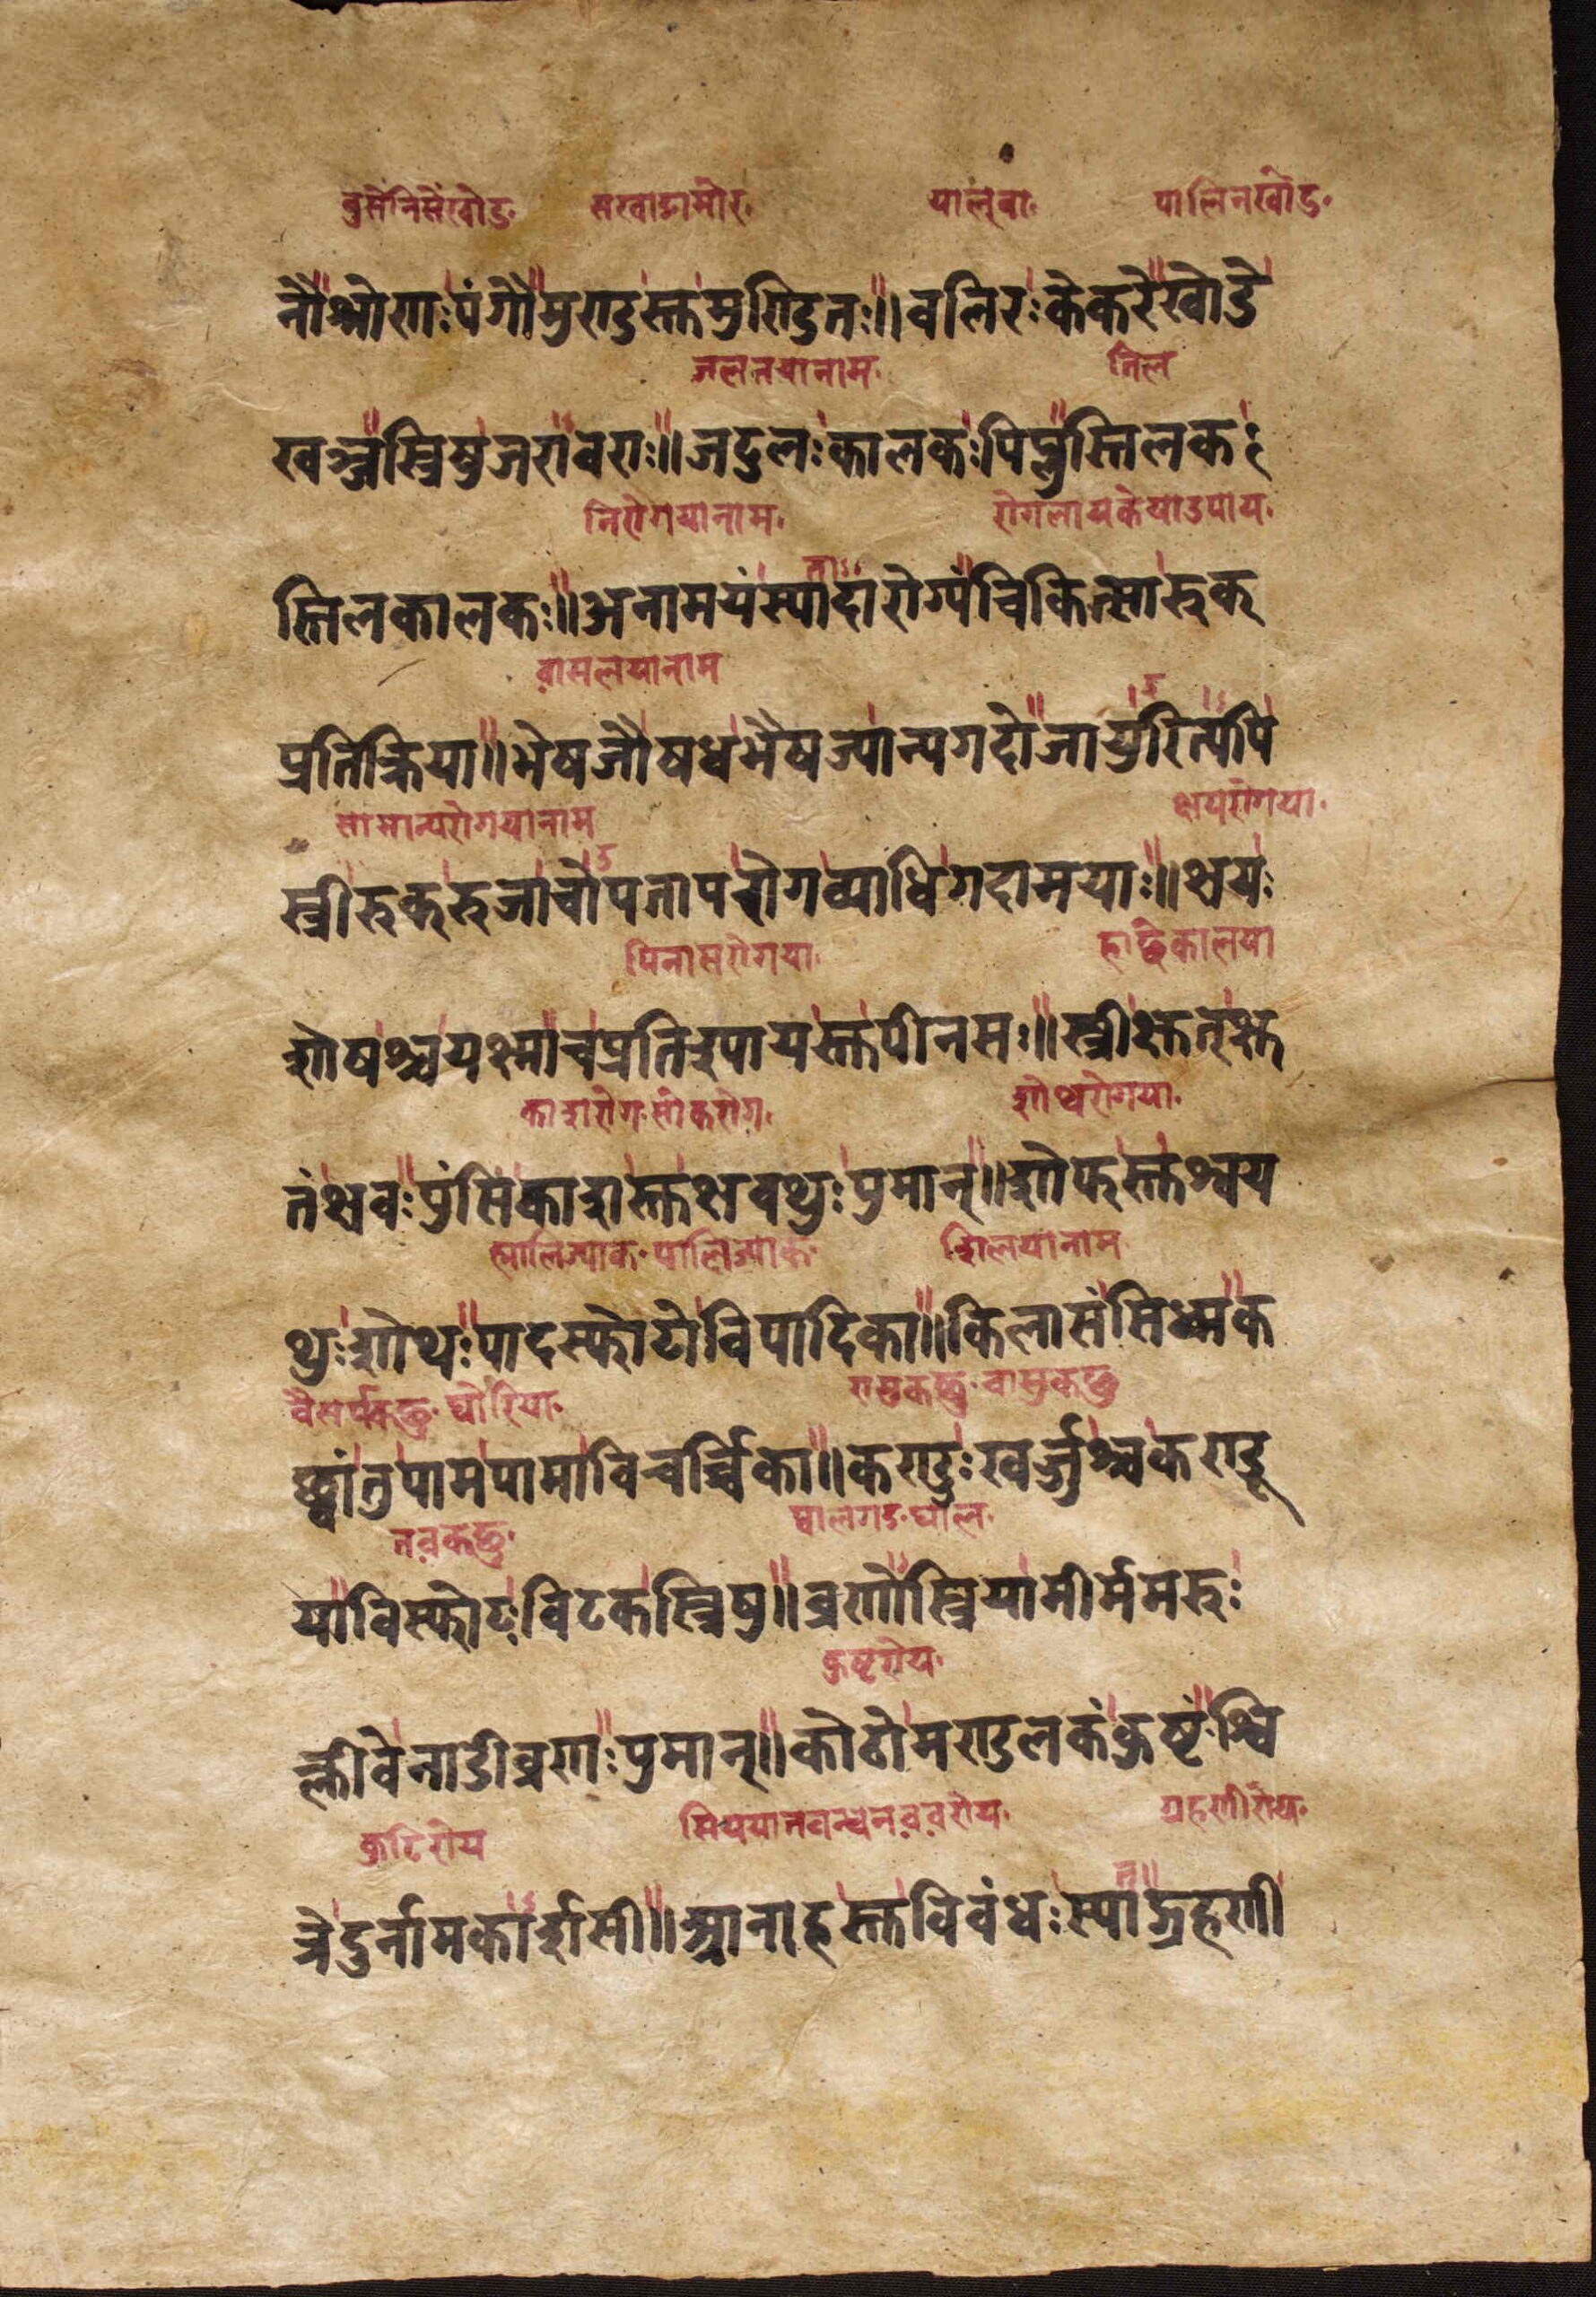 वुसेंनिसेंखोड॰ सखाङामोर॰ यालुवा॰ पालिनखोड॰
नौश्रोणःपंगौमुण्डस्तमुण्डितः॥वलिरःकेकरेखोडे
जलनयानाम॰ तिल
खञ्जस्त्रिषुजरावराः॥जटुलःकालकःपिप्लुस्तिलकः
निरोगयानाम॰ रोगलायकेयाउपाय॰
स्तिलकालकः॥अनामयंस्यादारोग्यंचिकित्सारुक्
वासलयानाम
प्रतिक्रिया॥भेषजौषधभैषज्यान्यगदोजायुरित्यपि
सामान्यरोगयानाम क्षयरोगया॰
स्त्रीरुक्रुजाचोपतापरोगव्याधिगदामयाः॥क्षयः
पिनासरोगया॰ हाछिकालया
शोषश्चयक्ष्माचप्रतिश्यायस्तपीनसः॥स्त्रीक्षुत्क्षु
काशरोग॰सोकरोग॰ शोथरोगया॰
तंक्षवःपुंसिकाशस्तक्षवथुःपुमान्॥शोफस्तश्वय
ह्मालिज्याक॰पालिज्याक॰ शिलयानाम
थुःशोथःपादस्फोटोविपादिका॥किलासंसिध्मक
वैसर्पकछु॰घोरिया॰ रासुकछु॰वासुकछु
च्छ्वांतुपामपामाविचर्च्चिका॥कण्डुःखर्जुश्चकण्डू
नवकछु॰ घालगड॰घाल॰
याविस्फोटःविटकस्त्रिषु॥व्रणोस्त्रियामीर्ममरुः
कुष्टरोय॰
क्लीवेनाडीव्रणःपुमान्॥कोठोमण्डलकंकुष्टंश्वि
कुटिरोय सिययानवन्धनववरोय॰ ग्रहणीरोय॰
त्रेदुर्नामकार्शसी॥आनाहस्तविवंधःस्याद्ग्रहणी